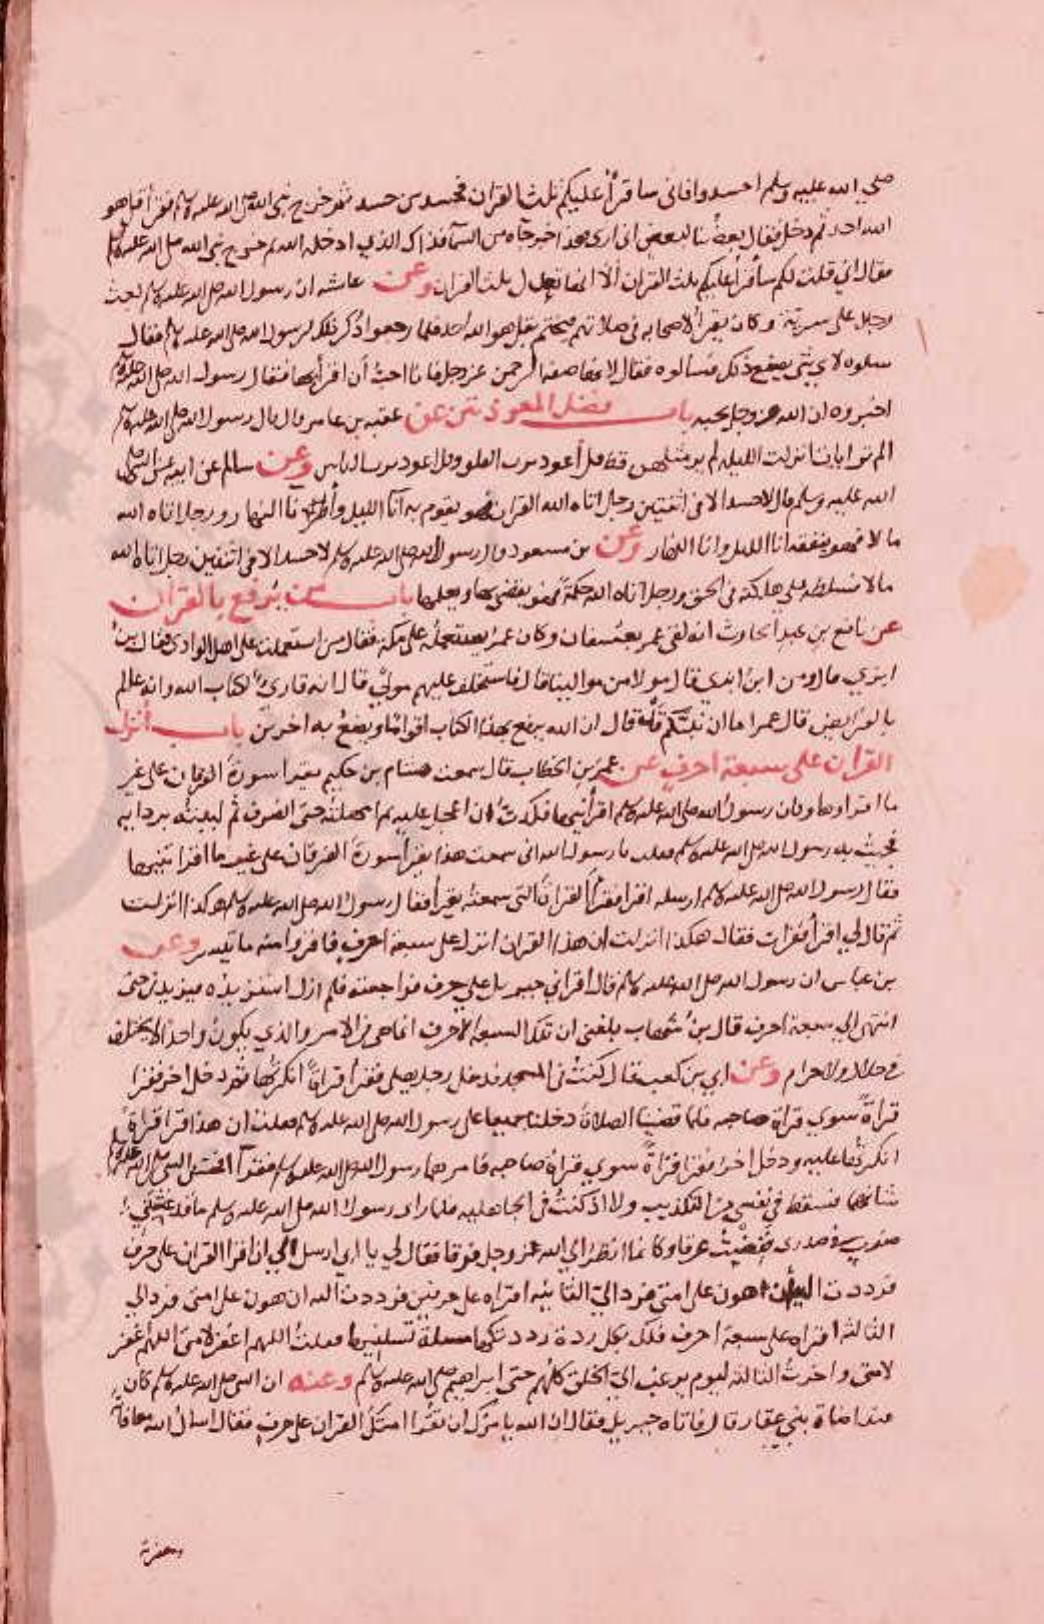 صلى الله عليه وسلم احسدوا فاني ساقرأ عليكم ثلث القران فحسد من حسد ثم خرج نبي الله صلى الله عليه وسلم فقرأ قل هو
الله احد ثم دخل فقال بعضنا لبعض اني ارى هذا خبر جاه من السما فذاك الذي ادخله الله ثم خرج نبي الله صلى الله عليه وسلم
فقال اني قلت لكم سأقرأ عليكم ثلث القران ألا انها تعدل ثلث القران وعن عائشه ان رسول الله صلى الله عليه وسلم بعث
رجلا على سرية وكان يقرأ لاصحابه في صلاتهم فيختم بقل هو الله احد فلما رجعوا ذكر ذلك لرسول الله صلى الله عليه وسلم فقال
سلوه لاي شي يصنع ذلك فسالوه فقال لانها صفة الرحمن عز وجل فانا احب أن اقرأ بها فقال رسول الله صلى الله عليه وسلم
اخبروه ان الله عز وجل يحبه باب فضل المعوذتين عن عقبه بن عامر قال قال رسول الله صلى الله عليه وسلم
الم تر ايات انزلت الليلة لم ير مثلهن قط قل أعوذ برب الفلق وقل اعوذ برب الناس وعن سالم عن ابيه عن النبي صلى
الله عليه وسلم قال لا حسد الا في اثنتين رجل اتاه الله القران فهو يقوم به آنا الليل وأطراف آنا النهار ورجل اتاه الله
مالا فهو ينفقه انا الليل وانا النهار وعن بن مسعود قال رسول الله صلى الله عليه وسلم لا حسد الا في اثنتين رجل اتاه الله
مالا فسلطه على هلكته في الحق ورجل اتاه الله حكمة فهو يقضي بها ويعلمها باب من يرفع بالقران
عن نافع بن عبد الحارث انه لقى عمر بعسفان وكان عمر يستعمله على مكة فقال من استعملت على اهل الوادى فقال بن
ابزي قال ومن ابن ابزي قال مولا من موالينا قال فاستخلف عليهم مولى قال انه قاري لكتاب الله وانه عالم
بالفرايض قال عمر اما ان نبيكم قد قال ان الله يرفع بهذا الكتاب اقواما ويضع به اخرين باب أنزل
القران على سبعة احرف عن عمر بن الخطاب قال سمعت هشام بن حكيم يقرا سورة الفرقان على غير
ما اقراوها وكان رسول الله صلى الله عليه وسلم اقرأنيها فكدت ان اعجل عليه ثم امهلته حتى انصرف ثم لببته بردايه
فجيت به رسول الله صلى الله عليه وسلم فقلت يا رسول الله اني سمعت هذا يقرأ سورة الفرقان على غير ما اقراتنيها
فقال رسول الله صلى الله عليه وسلم ارسله اقرا فقرأ القراة التى سمعته يقرأ فقال رسول الله صلى الله عليه وسلم هكذا انزلت
ثم قال لي اقرأ فقرات فقال هكذا انزلت ان هذا القران انزل على سبعة احرف فاقروا منه ما تيسر وعن
بن عباس ان رسول الله صلى الله عليه وسلم قال اقراني جبريل على حرف فراجعته فلم ازل استزيده فيزيدني حتى
انتهى الى سبعة احرف قال بن شهاب بلغني ان تلك السبعة الاحرف انما هي في الامر والذي يكون واحدا لا يختلف
في حلال ولا حرام وعن ابي بن كعب قال كنت في المسجد فدخل رجل يصلي فقرأ قراة انكرتها ثم دخل اخر فقرا
قراة سوي قراة صاحبه فلما قضينا الصلاة دخلنا جميعا على رسول الله صلى الله عليه وسلم فقلت ان هذا قرا قراة
انكرتها عليه ودخل اخر فقرا قراة سوي قراة صاحبه فامرهما رسول الله صلى الله عليه وسلم فقرآ فحسن النبي صلى الله عليه وسلم
شانهما فسقط في نفسي من التكذيب ولا اذ كنت في الجاهليه فلما راى رسول الله صلى الله عليه وسلم ما قد غشيني
ضرب في صدري ففضت عرقا وكانما انظر الى الله عز وجل فرقا فقال لي يا ابي ارسل الي ان اقرا القران على حرف
فرددت اليه أن هون على امتى فرد الي الثانيه اقراه على حرفين فرددت اليه ان هون على امتى فرد الي
الثالثة اقراه على سبعة احرف فلك بكل ردة رددتكها مسلة تسلنيها فقلت اللهم اغفر لامتى اللهم اغفر
لامتى واخرت الثالثة ليوم يرغب الي الخلق كلهم حتى ابراهيم صلى الله عليه وسلم وعنه ان النبي صلى الله عليه وسلم كان
عند اضاة بني غفار قال فاتاه جبريل فقال ان الله يامرك ان تقرا امتك القران على حرف فقال اسال الله معافاته
ومغفرته